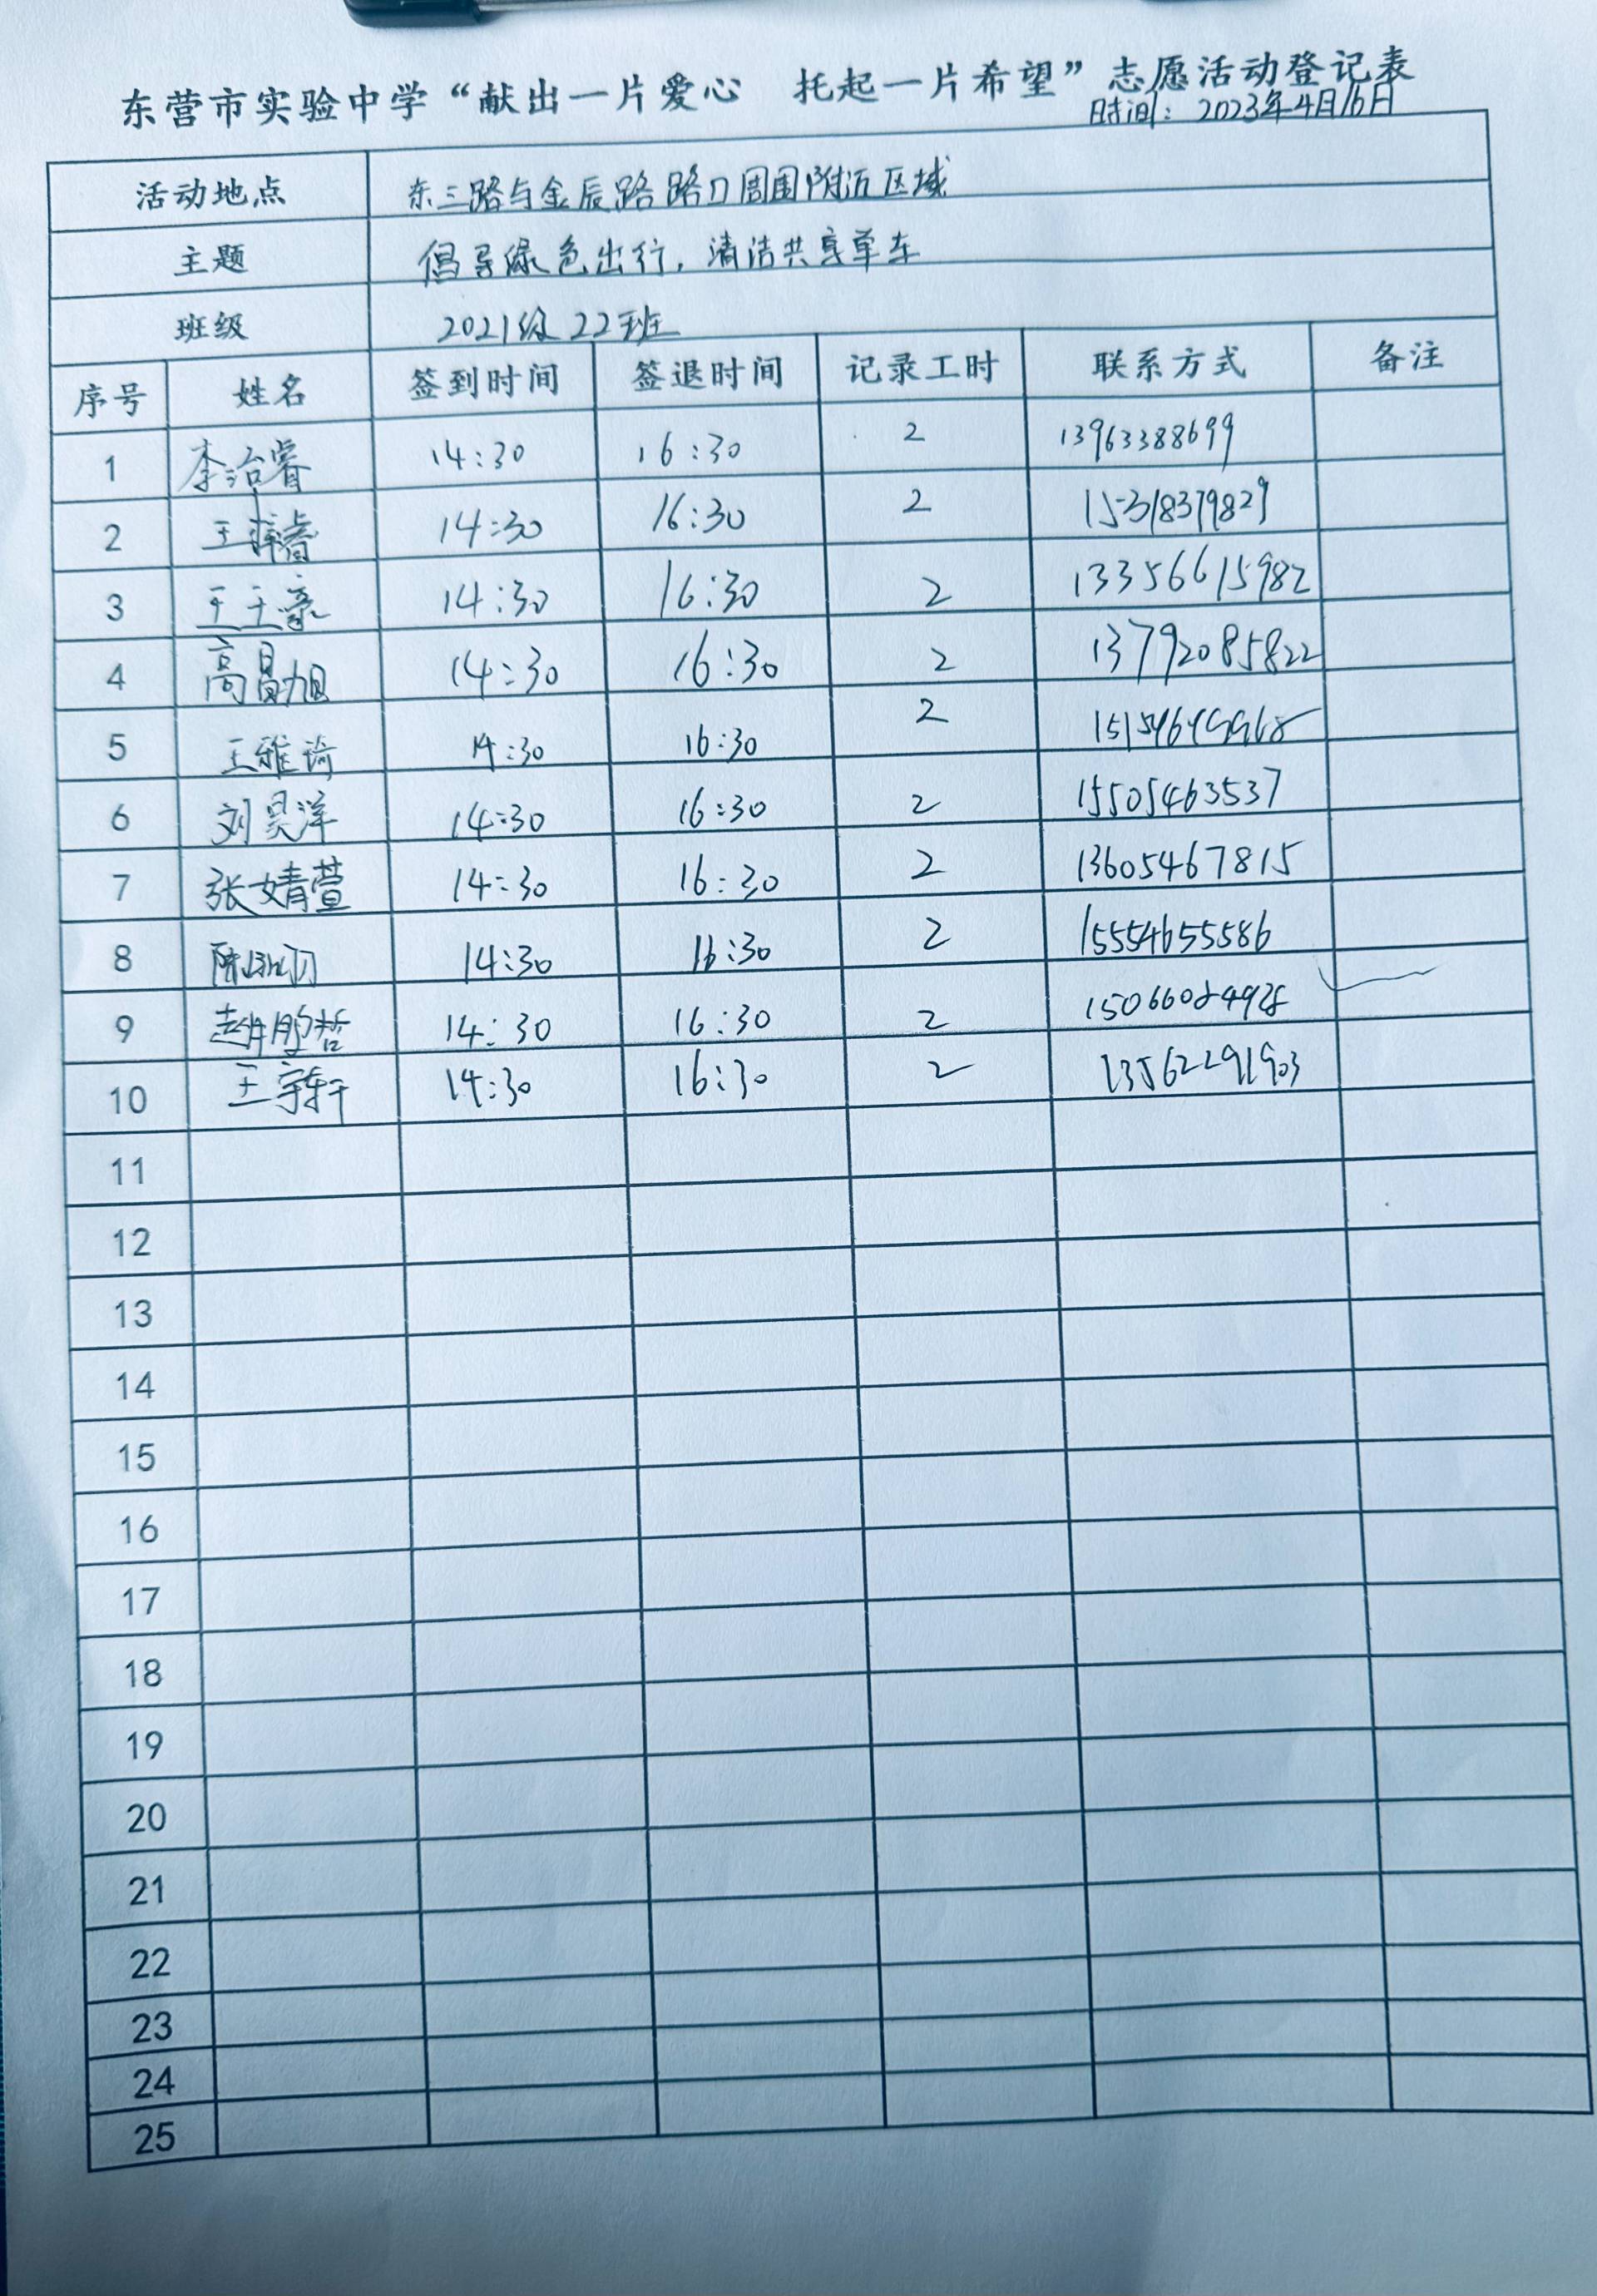 东营市实验中学“献出一片爱心 托起一片希望”志愿活动登记表
时间：2023年4月16日
活动地点 东三路与金辰路路口周围附近区域
主题 倡导绿色出行，清洁共享单车
班级 2021级22班
序号 姓名 签到时间 签退时间 记录工时 联系方式 备注
1 李治睿 14:30 16:30 2 13963388699
2 王梓睿 14:30 16:30 2 15318379829
3 王王豪 14:30 16:30 2 13356615982
4 高昌旭 14:30 16:30 2 13792085822
5 王雅琦 14:30 16:30 2
6 刘昊洋 14:30 16:30 2 15505463537
7 张婧萱 14:30 16:30 2 13605467815
8 14:30 16:30 2 15554655586
9 赵朋哲 14:30 16:30 2 15066084928
10 王宇轩 14:30 16:30 2 13562291903
11
12
13
14
15
16
17
18
19
20
21
22
23
24
25